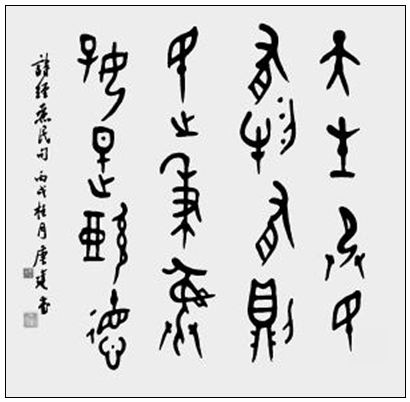 天生烝民
有物有則
民之秉彝
好是懿德
詩經烝民句 丙戌桂月 唐 書